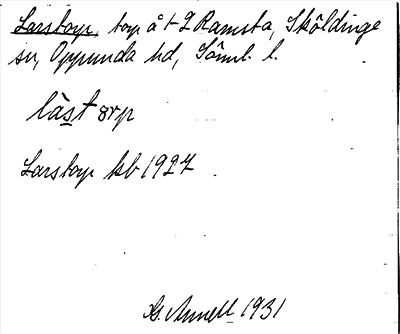 Larstorp, torp å t L Ramsta, Sköldinge
sn, Oppunda hd, Söml. l.
làst ørp
Larstorp kb 1927
G. Annell 1931